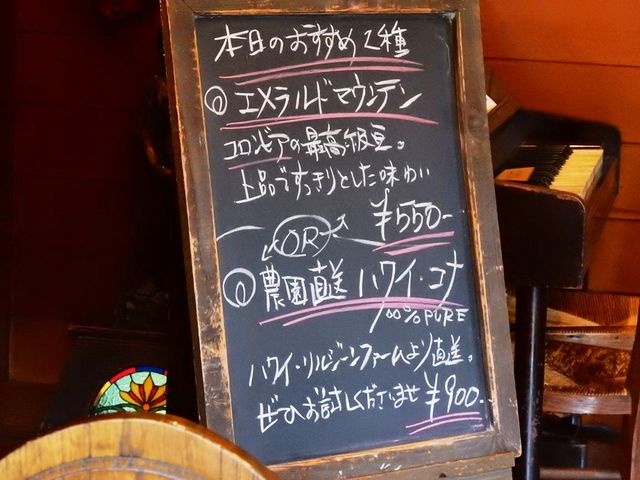 本日のおすすめ2種
① エメラルドマウンテン
コロンビアの最高級豆。
上品ですっきりとした味わい
¥550-
OR
① 農園直送 ハワイ・コナ
100%PURE
ハワイ・リルジーンファームより直送。
ぜひお試しくださいませ ¥900-